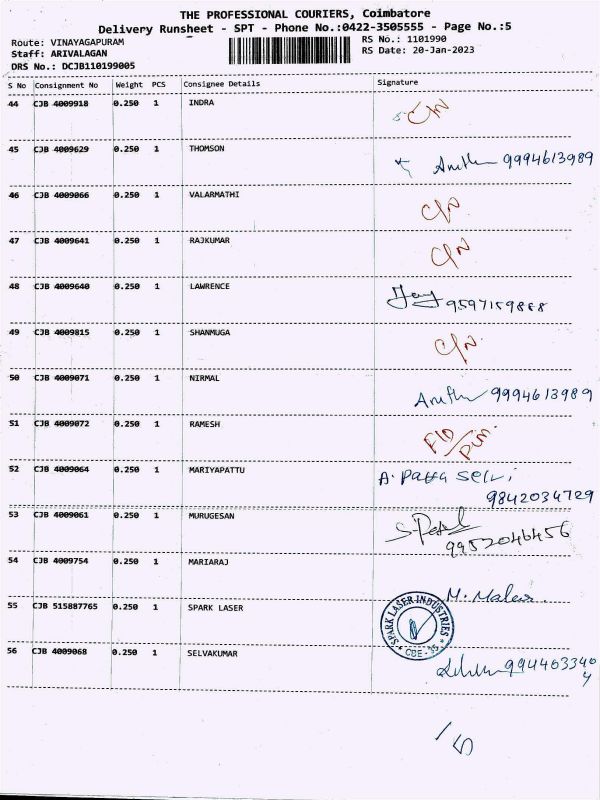 THE PROFESSIONAL COURIERS, Coimbatore
Delivery Runsheet - SPT - Phone No.:0422-3505555 - Page No.:5
Route: VINAYAGAPURAM
Staff: ARIVALAGAN
DRS No.: DCJB110199005
RS No.: 1101990
RS Date: 20-Jan-2023
S No Consignment No Weight PCS Consignee Details Signature
44 CJB 4009918 0.250 1 INDRA C/N
45 CJB 4009629 0.250 1 THOMSON 9994613989
46 CJB 4009066 0.250 1 VALARMATHI C/N
47 CJB 4009641 0.250 1 RAJKUMAR C/N
48 CJB 4009640 0.250 1 LAWRENCE 9597159868
49 CJB 4009815 0.250 1 SHANMUGA C/N
50 CJB 4009071 0.250 1 NIRMAL 9994613989
51 CJB 4009072 0.250 1 RAMESH
52 CJB 4009064 0.250 1 MARIYAPATTU A. Patta Selvi
9842034729
53 CJB 4009061 0.250 1 MURUGESAN
9952046456
54 CJB 4009754 0.250 1 MARIARAJ
M. Malar
55 CJB 515887765 0.250 1 SPARK LASER SPARK LASER INDUSTRIES CBE - 35
56 CJB 4009068 0.250 1 SELVAKUMAR